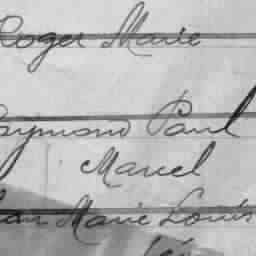 Roger Marie
Raymond Paul
Marcel
Jean Marie Louis